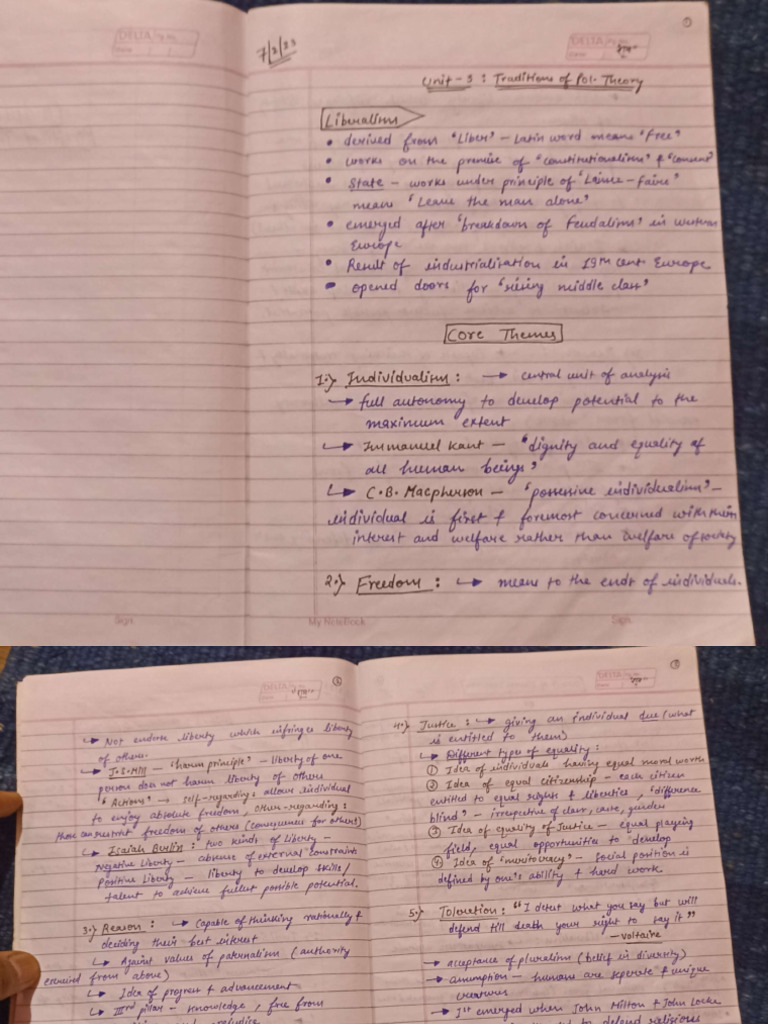 ①
DELTA
Date
DELTA
Date
7/2/23
Unit-5 : Traditions of Pol. Theory
Liberalism
• derived from "Liber" – Latin word means "Free"
• works on the premise of "constitutionalism" & "consent"
• State – works under principle of "Laisse-faire"
means "Leave the man alone"
• emerged after "breakdown of feudalism" in western
Europe
• Result of industrialisation in 19th cent Europe
• opened doors for "rising middle class"
Core Themes
1.) Individualism : → central unit of analysis
↳ full autonomy to develop potential to the
maximum extent
↳ Immanuel Kant – "dignity and equality of
all human beings"
↳ C.B. Macpherson – "possessive individualism" –
individual is first & foremost concerned with their
interest and welfare rather than welfare of society
2.) Freedom : ↳ means to the ends of individuals.
Sign.
My NoteBook
Sign.
DELTA
Date
↳ Not endorse liberty which infringes liberty
of others.
↳ J.S. Mill – "harm principle" – liberty of one
person does not harm liberty of others
"Actions" → self-regarding: allows individual
to enjoy absolute freedom, other-regarding:
those can restrict freedom of others (consequences for others)
↳ Isaiah Berlin : two kinds of liberty –
Negative liberty – absence of external constraints
Positive liberty – liberty to develop skills/
talent to achieve fullest possible potential.
3.) Reason : ↳ Capable of thinking rationally &
deciding their best interest
↳ Against values of paternalism (authority
exercised from above)
↳ Idea of progress & advancement
↳ IIIrd pillar – knowledge, free from
prejudice
③
DELTA
Date
4.) Justice : ↳ giving an individual due (what
is entitled to them)
↳ Different type of equality :
① Idea of individuals having equal moral worth
② Idea of equal citizenship – each citizen
entitled to equal rights & liberties, "difference
blind" – irrespective of class, caste, gender
③ Idea of equality of Justice – equal playing
field, equal opportunities to develop
④ Idea of "meritocracy" – social position is
defined by one's ability & hard work.
5.) Toleration : "I detest what you say but will
defend till death your right to say it"
– Voltaire
→ acceptance of pluralism (belief in diversity)
→ assumption – humans are seperate & unique
creatures
→ 1st emerged when John Milton & John Locke
to defend religious